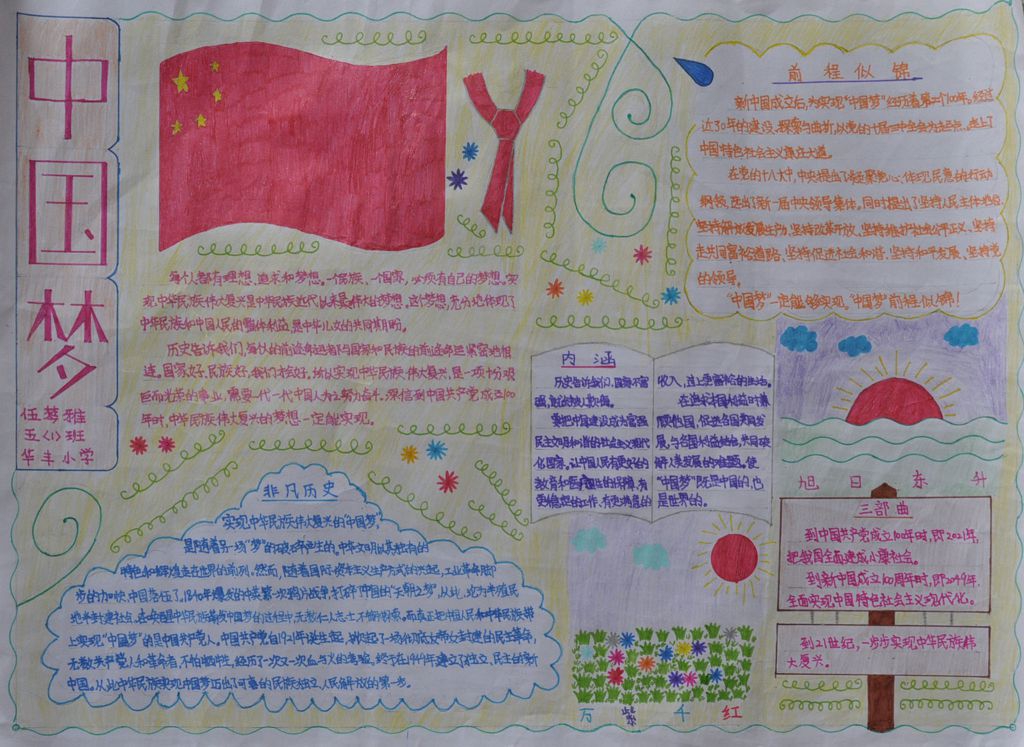 中国梦
伍梦雅
五<1>班
华丰小学
每个人都有理想、追求和梦想。一个民族、一个国家，必须有自己的梦想。实
现中华民族伟大复兴是中华民族近代以来最伟大的梦想。这个梦想，充分地体现了
中华民族和中国人民的整体利益，是中华儿女的共同期盼。
历史告诉我们，每个人的前途命运都与国家和民族的前途命运紧密地相
连。国家好，民族好，我们才会好。所以实现中华民族伟大复兴，是一项十分艰
巨而光荣的事业，需要一代一代中国人为之努力奋斗。深信到中国共产党成立100
年时，中华民族伟大复兴的梦想一定能实现。
前程似锦
新中国成立后，为实现"中国梦"经历着第二个100年。经过
近30年的建设、探索与曲折，以党的十届三中全会为主起点，走上了
中国特色社会主义康庄大道。
在党的十八大中，中央提出了
纲领，选出了新一届中央领导集体。同时提出了坚持人民主体地位、
坚持解放发展生产力、坚持改革开放、坚持维护社会公平正义、坚持
走共同富裕道路、坚持促进社会和谐、坚持和平发展、坚持党
的领导。
"中国梦"一定能够实现，"中国梦"前程似锦！
内涵
历史告诉我们，国家不富
强，就会被人欺侮。
要把中国建设成为富强
民主文明和谐的社会主义现代
化国家，让中国人民有更好的
教育和医疗卫生的保障，有
更稳定的工作，有更满意的
收入，过上更富裕的生活。
在追求本国利益时兼
顾他国，促进各国共同发
展，与各国利益结合，共同破
解人类发展的难题。使
"中国梦"既是中国的，也
是世界的。
旭日东升
三部曲
到中国共产党成立100年时，即2021年，
把我国全面建成小康社会。
到新中国成立100周年时，即2049年，
全面实现中国特色社会主义现代化。
到21世纪，一步步实现中华民族伟
大复兴。
非凡历史
实现中华民族伟大复兴的"中国梦"，
是随着另一场"梦"的破碎产生的。中华文明以其独有的
特色和辉煌走在世界的前列。然而，随着国际资本主义生产方式的兴起，工业革命脚
步的加快，中国落伍了，1840年爆发的中英第一次鸦片战争，打碎了中国的"天朝之梦"。从此，沦为半殖民
地半封建社会。在唤醒中华民族探索中国梦的过程中，无数仁人志士，不懈探索。而真正把中国人民和中华民族带
上实现"中国梦"的是中国共产党人。中国共产党自1921年诞生起，掀起了一场的反帝反封建的民主革命，
无数共产党人和革命者，不怕牺牲，经历了一次又一次血与火的考验，终于在1949年建立了独立、民主的新
中国。从此中华民族实现中国梦迈出了可喜的民族独立、人民解放的第一步。
万紫千红